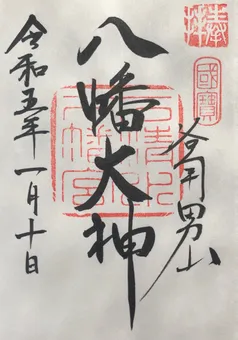 奉拝
國寶
菖男山
八幡大神
石清水八幡宮
令和五年一月十日